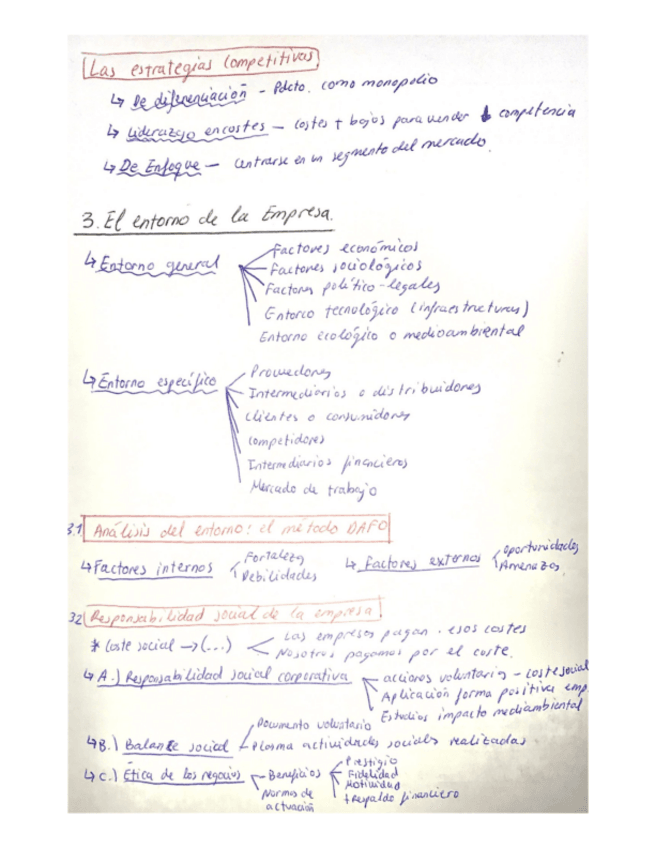 Las estrategias Competitivas
↳ De diferenciación - Pdcto. como monopolio
↳ Liderazgo en costes - costes + bajos para vender ↓ competencia
↳ De Enfoque - Centrarse en un segmento del mercado.
3. El entorno de la Empresa.
↳ Entorno general
Factores económicos
Factores sociológicos
Factores político-legales
Entorco tecnológico (infraestructuras)
Entorno ecológico o medioambiental
↳ Entorno específico
Proveedores
Intermediarios o distribuidores
Clientes o consumidores
Competidores
Intermediarios financieros
Mercado de trabajo
3.1 Análisis del entorno: el método DAFO
↳ Factores internos
Fortaleza
Debilidades
↳ Factores externos
Oportunidades
Amenazas
3.2 Responsabilidad social de la empresa
* Coste social → (...)
Las empresas pagan esos costes
Nosotros pagamos por el coste.
↳ A.) Responsabilidad social corporativa
acciones voluntarias - coste social
Aplicación forma positiva emp.
Estudios impacto medioambiental
↳ B.) Balance social
Documento voluntario
Plasma actividades sociales realizadas
↳ C.) Ética de los negocios
Beneficios
Prestigio
Fidelidad
Motividad
+ respaldo financiero
Normas de
actuación